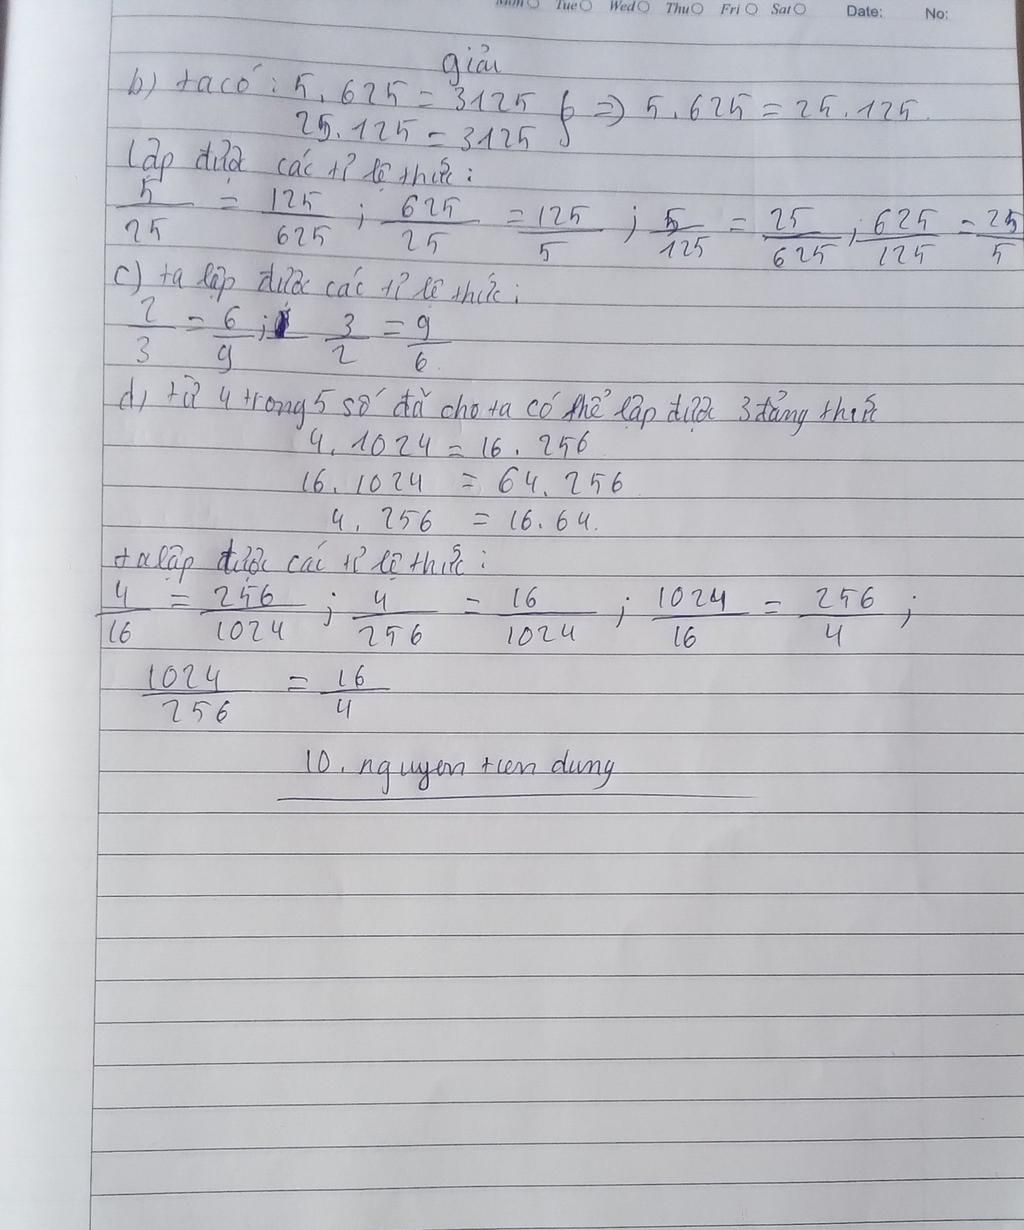 Mon Tue Wed Thu Fri Sat Date: No:
giải
b) ta có: 5.625 = 3125 } => 5.625 = 25.125.
25.125 = 3125
lập được các tỉ lệ thức:
5/25 = 125/625 ; 625/25 = 125/5 ; 5/125 = 25/625 ; 625/125 = 25/5
c) ta lập được các tỉ lệ thức;
2/3 = 6/9 ; 3/2 = 9/6
d, từ 4 trong 5 số đã cho ta có thể lập được 3 đẳng thức
4.1024 = 16.256
16.1024 = 64.256
4.256 = 16.64.
ta lập được các tỉ lệ thức:
4/16 = 256/1024 ; 4/256 = 16/1024 ; 1024/16 = 256/4 ;
1024/256 = 16/4
10. nguyen tien dung